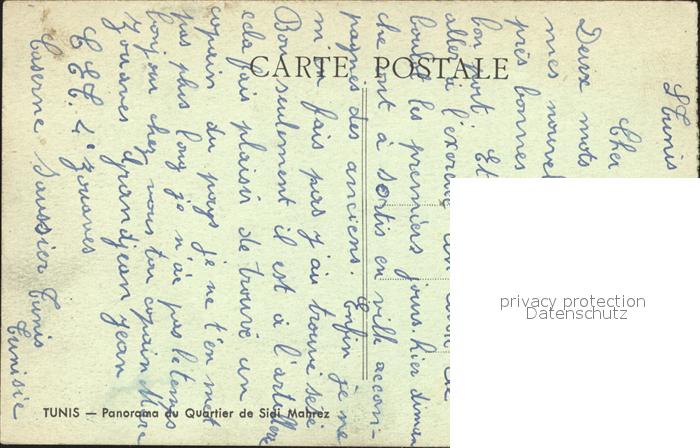 CARTE POSTALE
Tunis
Cher
Deux mots
mes nouvel
près bonnes
bon port Et
aller à l'exercice
bouts les premiers jours. hier diman
che ont à sortis en ville accom-
pagnés des anciens. Enfin je ne
m'en fais pas j'ai trouvé ici
Bon seulement il est à l'artillerie
cela fais plaisir de trouvé un
copain du pays je ne t'en met
pas plus long je n'ai pas le temps
bonjour chez vous ton copain Marc
Zouaves Grandjean Jean
4 Zouaves
Caserne Saussier Tunis
Tunisie
TUNIS — Panorama du Quartier de Sidi Mahrez
privacy protection
Datenschutz